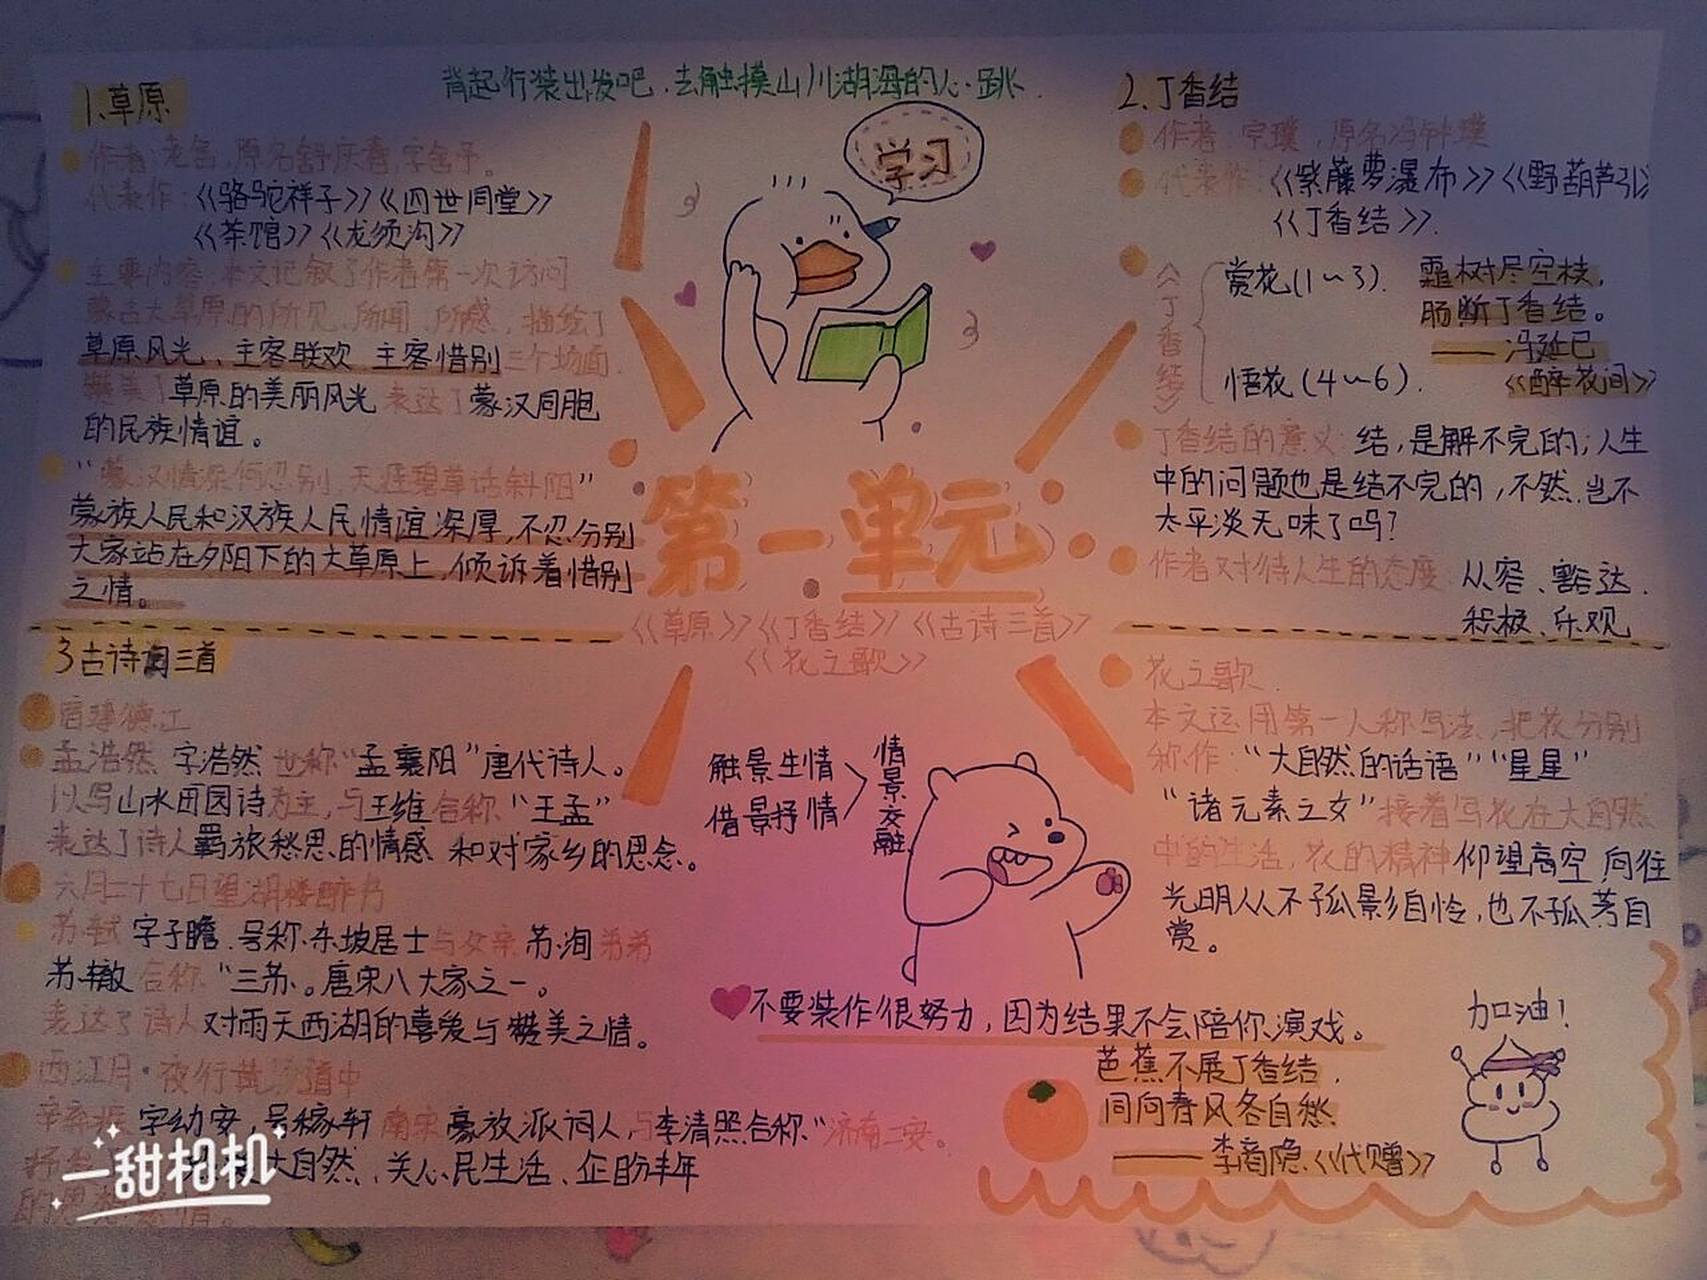 背起行装出发吧.去触摸山川湖海的心跳.
1.草原
作者:老舍,原名舒庆春,字舍予。
代表作:《骆驼祥子》《四世同堂》
《茶馆》《龙须沟》
主要内容:本文记叙了作者第一次访问
蒙古大草原的所见、所闻、所感,描绘了
草原风光、主客联欢 主客惜别三个场面.
赞美了草原的美丽风光 表达了蒙汉同胞
的民族情谊。
“蒙汉情深何忍别,天涯碧草话斜阳”
蒙族人民和汉族人民情谊深厚,不忍分别
大家站在夕阳下的大草原上,倾诉着惜别
之情。
学习
2.丁香结
作者:宗璞,原名冯钟璞
代表作:《紫藤萝瀑布》《野葫芦引》
《丁香结》.
《丁香结》
赏花(1~3). 霜树尽空枝,
肠断丁香结。
——冯延巳
悟花(4~6). 《醉花间》
丁香结的意义:结,是解不完的;人生
中的问题也是结不完的,不然,岂不
太平淡无味了吗?
作者对待人生的态度:从容、豁达.
积极、乐观
第一单元
《草原》《丁香结》《古诗三首》
《花之歌》
3古诗词三首
宿建德江
孟浩然 字浩然 世称“孟襄阳”唐代诗人。
以写山水田园诗为主,与王维合称“王孟”
表达了诗人羁旅愁思的情感 和对家乡的思念。
六月二十七日望湖楼醉书
苏轼 字子瞻.号称.东坡居士与父亲 苏洵 弟弟
苏辙 合称“三苏。唐宋八大家之一。
表达了诗人对雨天西湖的喜爱与赞美之情。
西江月·夜行黄沙道中
辛弃疾 字幼安,号稼轩 南宋豪放派词人,与李清照合称“济南二安。
大自然、关心民生活、企盼丰年
的思想感情。
触景生情
借景抒情
情景交融
花之歌.
本文运用第一人称写法,把花分别
称作:“大自然的话语”“星星”
“诸元素之女”接着写花在大自然
中的生活,花的精神仰望高空 向往
光明从不孤影自怜,也不孤芳自
赏。
不要装作很努力,因为结果不会陪你演戏。
芭蕉不展丁香结,
同向春风各自愁.
——李商隐《代赠》
加油!
一甜相机